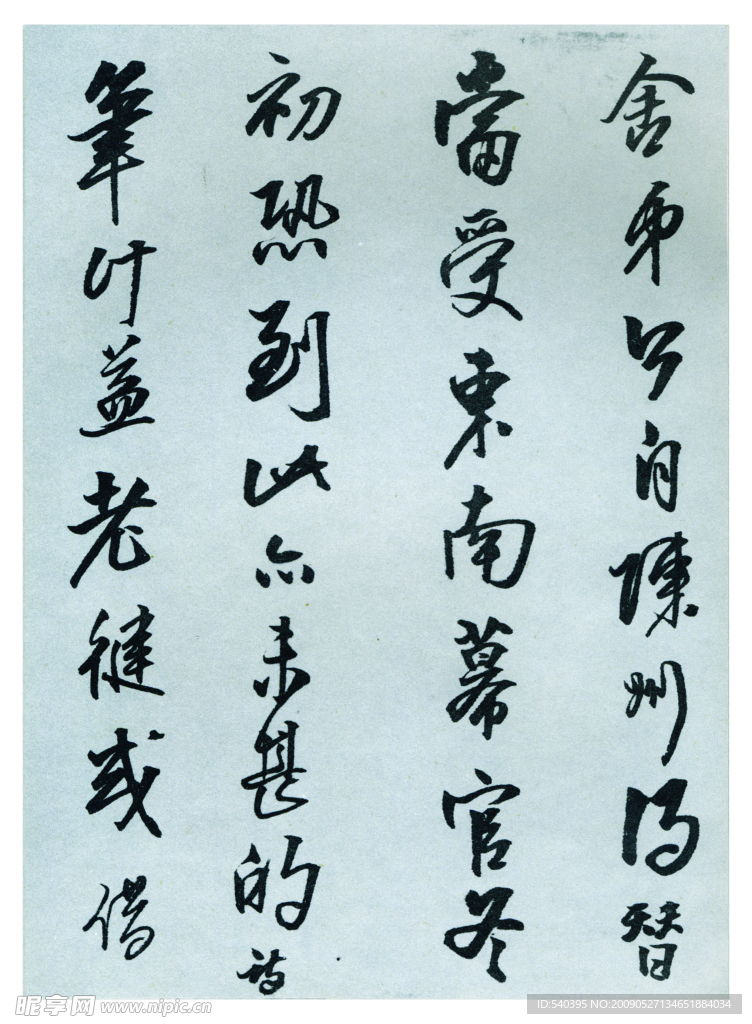 舍弟今自陳州得替
當受東南幕官冬
初恐到此亦未甚的詩
筆計益老健或借
昵享网 www.nipic.cn
ID:540395 NO:20090527134651884034